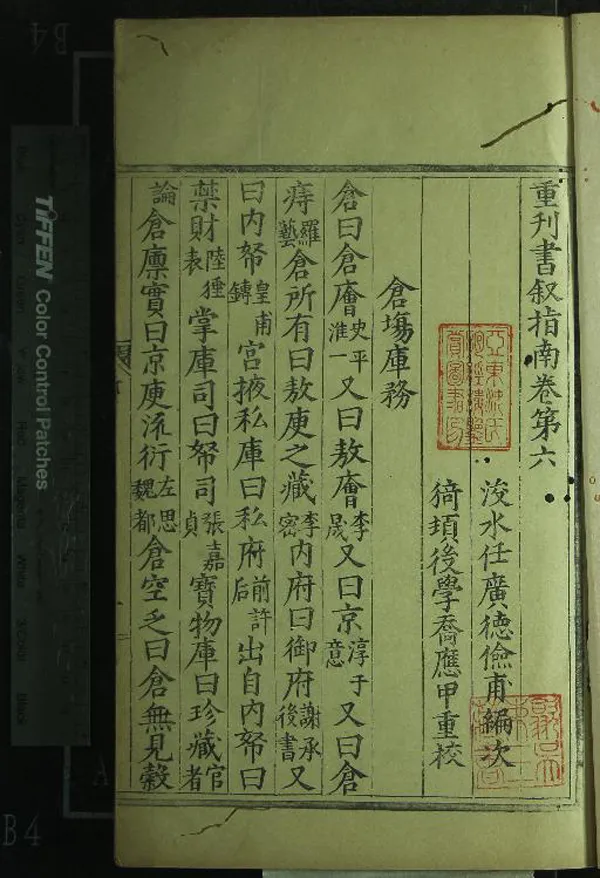 重刋書叙指南卷第六
浚水任廣徳儉甫編次
猗頊後學喬應甲重校
倉塲庫務
倉曰倉廥史平淮一又曰敖廥李晟又曰京淳于意又曰倉
庤羅藝倉所有曰敖庾之藏李密内府曰御府謝承後書又
曰内帑皇甫鏄宫掖私庫曰私府前許后出自内帑曰
禁財陸贄表掌庫司曰帑司張嘉貞寶物庫曰珍藏官者
論倉廪實曰京庾流衍左思魏都倉空乏曰倉無見穀
TIFFEN Color Control Patches
B4
B4
A